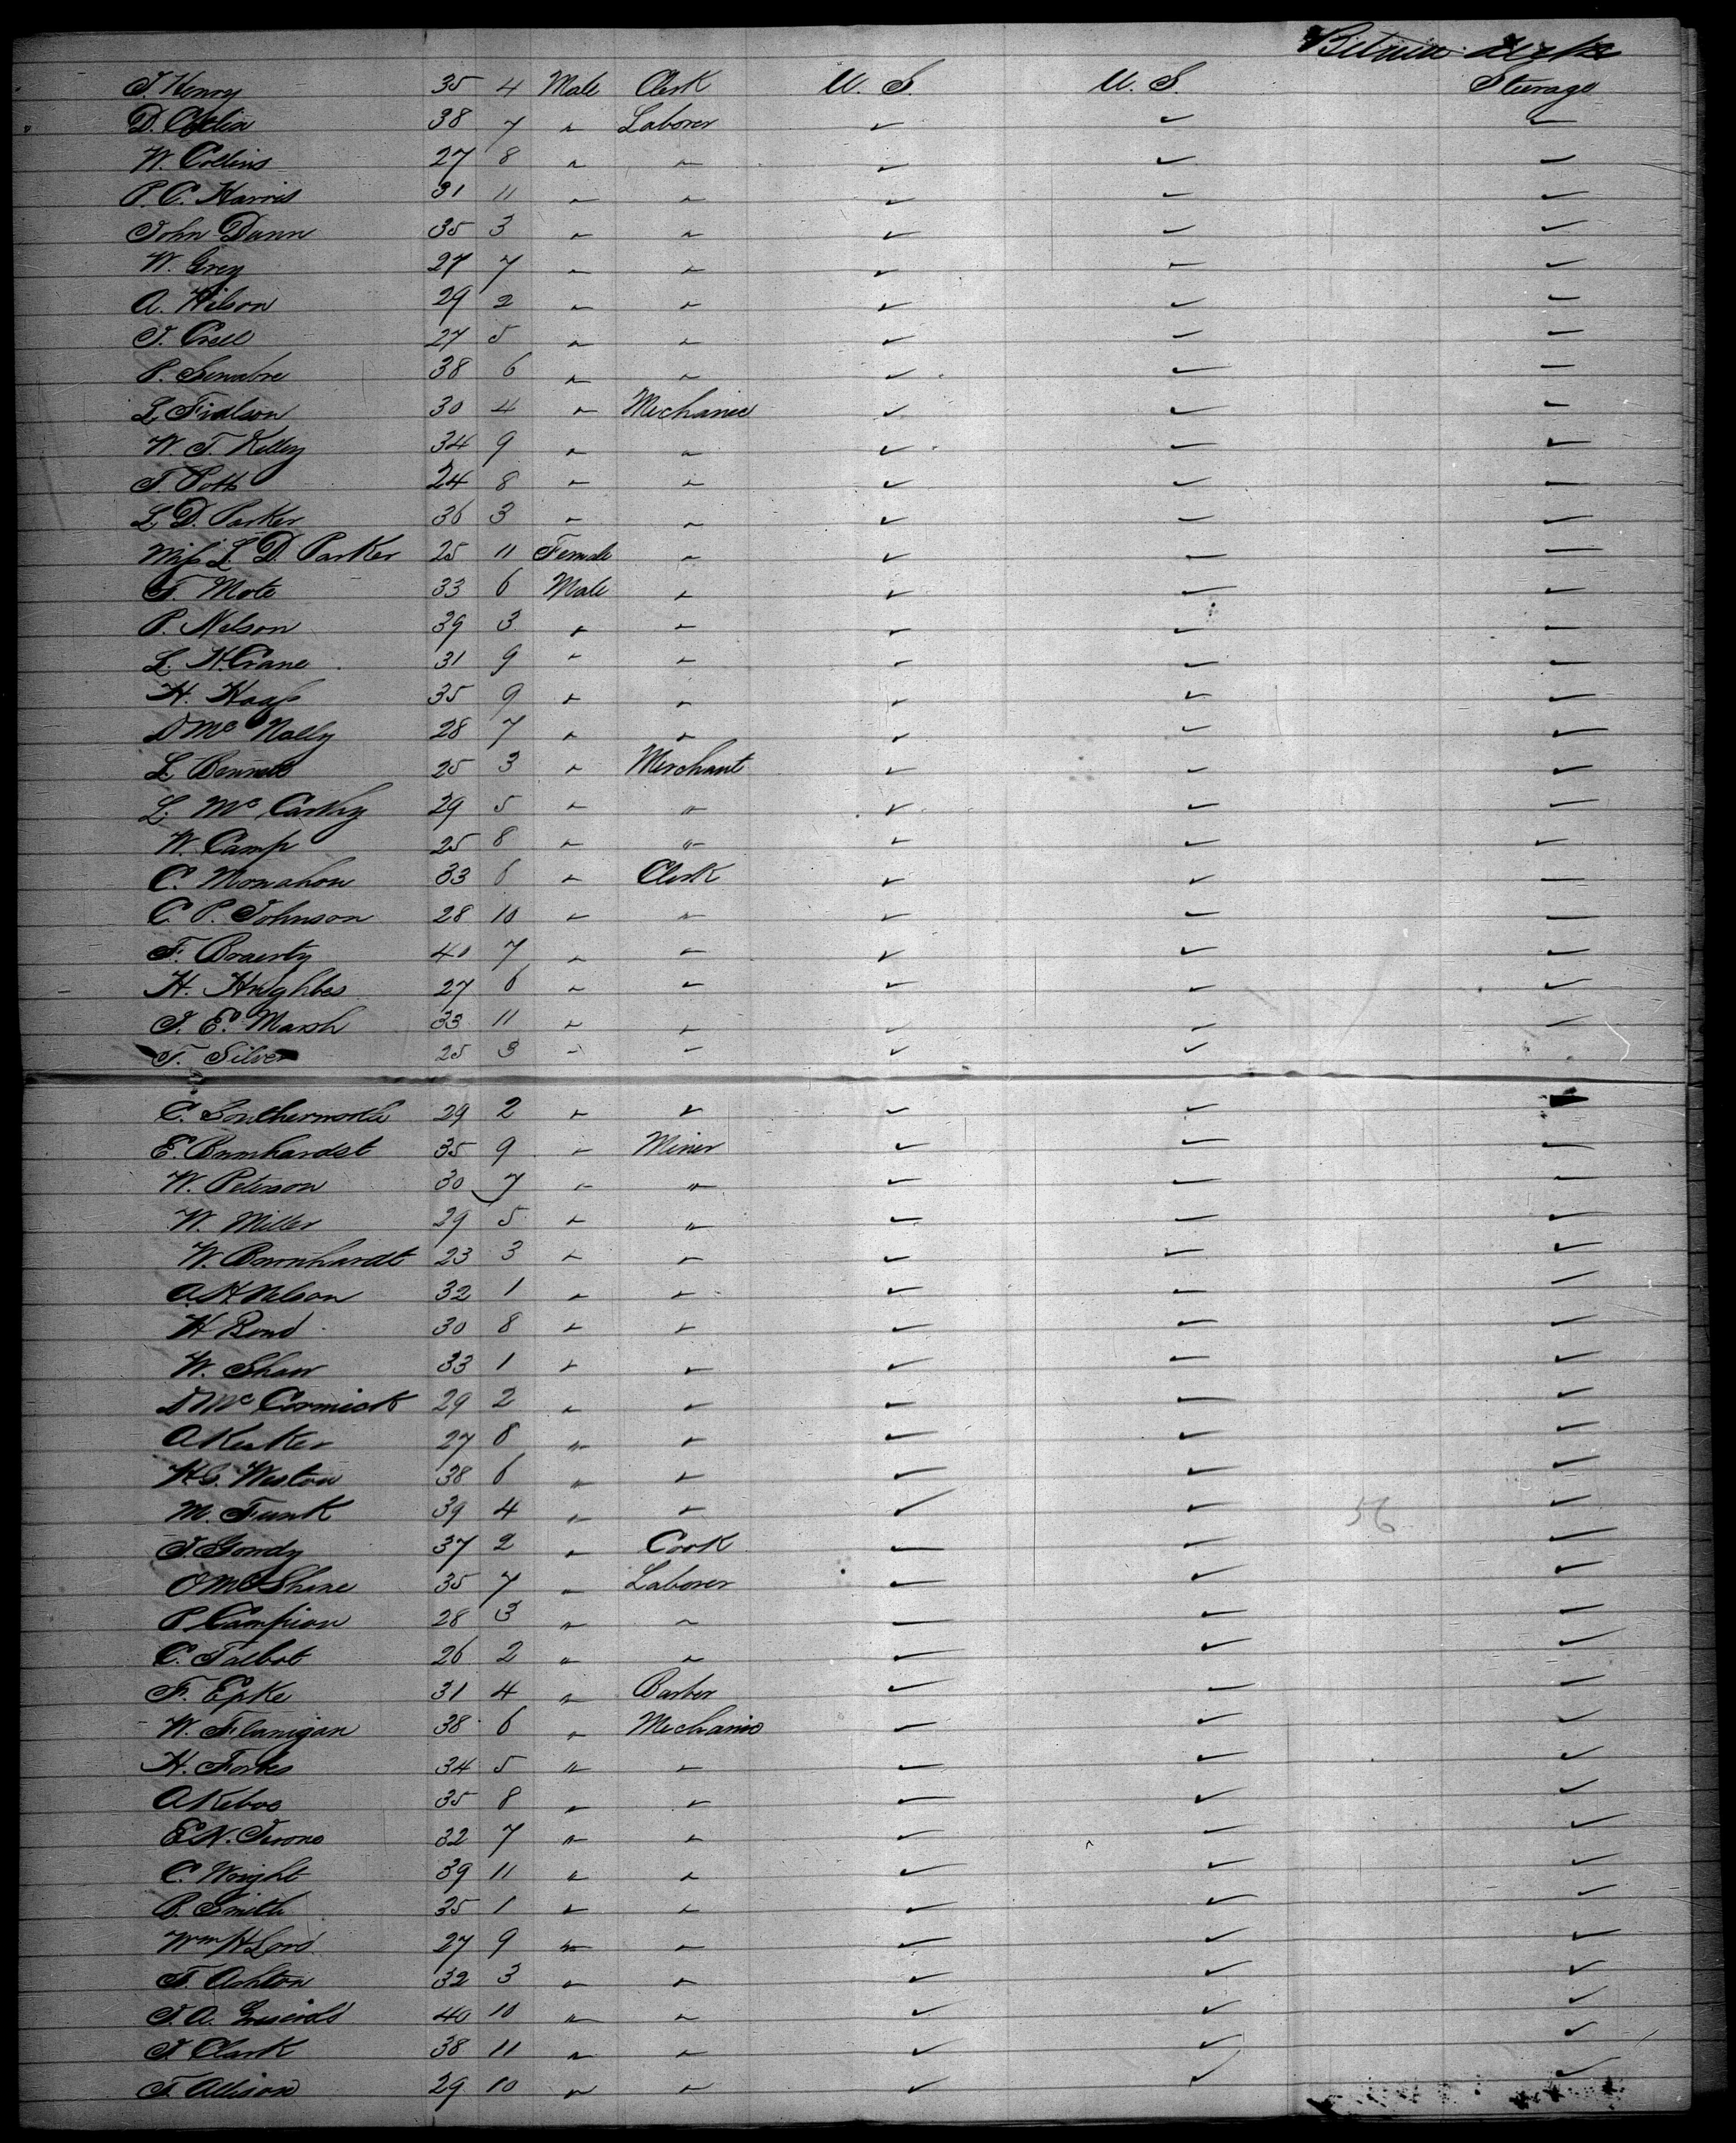 Between decks
J. Henry 35 4 Male Clerk U. S. U. S. Steerage
D. 38 7 " Laborer ✓ ✓ ✓
W. Collins 27 8 " " ✓ ✓ ✓
P. C. Harris 31 11 " " ✓ ✓ ✓
John Dunn 35 3 " " ✓ ✓ ✓
W. Grey 27 7 " " ✓ ✓ ✓
A. Wilson 29 2 " " ✓ ✓ ✓
J. Crell 27 5 " " ✓ ✓ ✓
P. 38 6 " " ✓ ✓ ✓
L. Fidlson 30 4 " Mechanic ✓ ✓ ✓
W. T. Kelley 34 9 " " ✓ ✓ ✓
T. Potts 24 8 " " ✓ ✓ ✓
L. D. Parker 36 3 " " ✓ ✓ ✓
Miss L. D. Parker 25 11 Female " ✓ ✓ ✓
T. Mote 33 6 Male " ✓ ✓ ✓
P. Nelson 39 3 " " ✓ ✓ ✓
L. H. Crane 31 9 " " ✓ ✓ ✓
H. Haass 35 9 " " ✓ ✓ ✓
D Mc Nally 28 7 " " ✓ ✓ ✓
L. Bennett 25 3 " Merchant ✓ ✓ ✓
L. Mc Carthy 29 5 " " ✓ ✓ ✓
W. Camp 25 8 " " ✓ ✓ ✓
C. Monahon 33 6 " Clerk ✓ ✓ ✓
C. P. Johnson 28 10 " " ✓ ✓ ✓
F. 40 7 " " ✓ ✓ ✓
H. Hughbes 27 6 " " ✓ ✓ ✓
J. E. Marsh 33 11 " " ✓ ✓ ✓
T. Silver 25 3 " " ✓ ✓
C. Southernorth 29 2 " " ✓ ✓
E. Burnhardst 35 9 " Miner ✓ ✓ ✓
W. Peterson 30 7 " " ✓ ✓ ✓
W. Miller 29 5 " " ✓ ✓ ✓
W. Burnhardt 23 3 " " ✓ ✓ ✓
A. H Nelson 32 1 " " ✓ ✓ ✓
H Bend 30 8 " " ✓ ✓ ✓
W. Shaw 33 1 " " ✓ ✓ ✓
D Mc Cormick 29 2 " " ✓ ✓ ✓
A Kesker 27 8 " " ✓ ✓ ✓
H. G. Weston 38 6 " " ✓ ✓ ✓
M. Funk 39 4 " " ✓ ✓ 56 ✓
J. Gordy 37 2 " Cook ✓ ✓ ✓
O Mc Shane 35 7 " Laborer ✓ ✓ ✓
P Campion 28 3 " " ✓ ✓ ✓
C. Talbot 26 2 " " ✓ ✓ ✓
F. Epke 31 4 " Barber ✓ ✓ ✓
W. Flanigan 38 6 " Mechanic ✓ ✓ ✓
H. Forbes 34 5 " " ✓ ✓ ✓
A Kebos 35 8 " " ✓ ✓ ✓
E. N. 32 7 " " ✓ ✓ ✓
C. Wright 39 11 " " ✓ ✓ ✓
B. Smith 35 1 " " ✓ ✓ ✓
Wm H Lord 27 9 " " ✓ ✓ ✓
T. Ashton 32 3 " " ✓ ✓ ✓
J. A. 40 10 " " ✓ ✓ ✓
J Clark 38 11 " " ✓ ✓ ✓
T. Allison 29 10 " " ✓ ✓ ✓